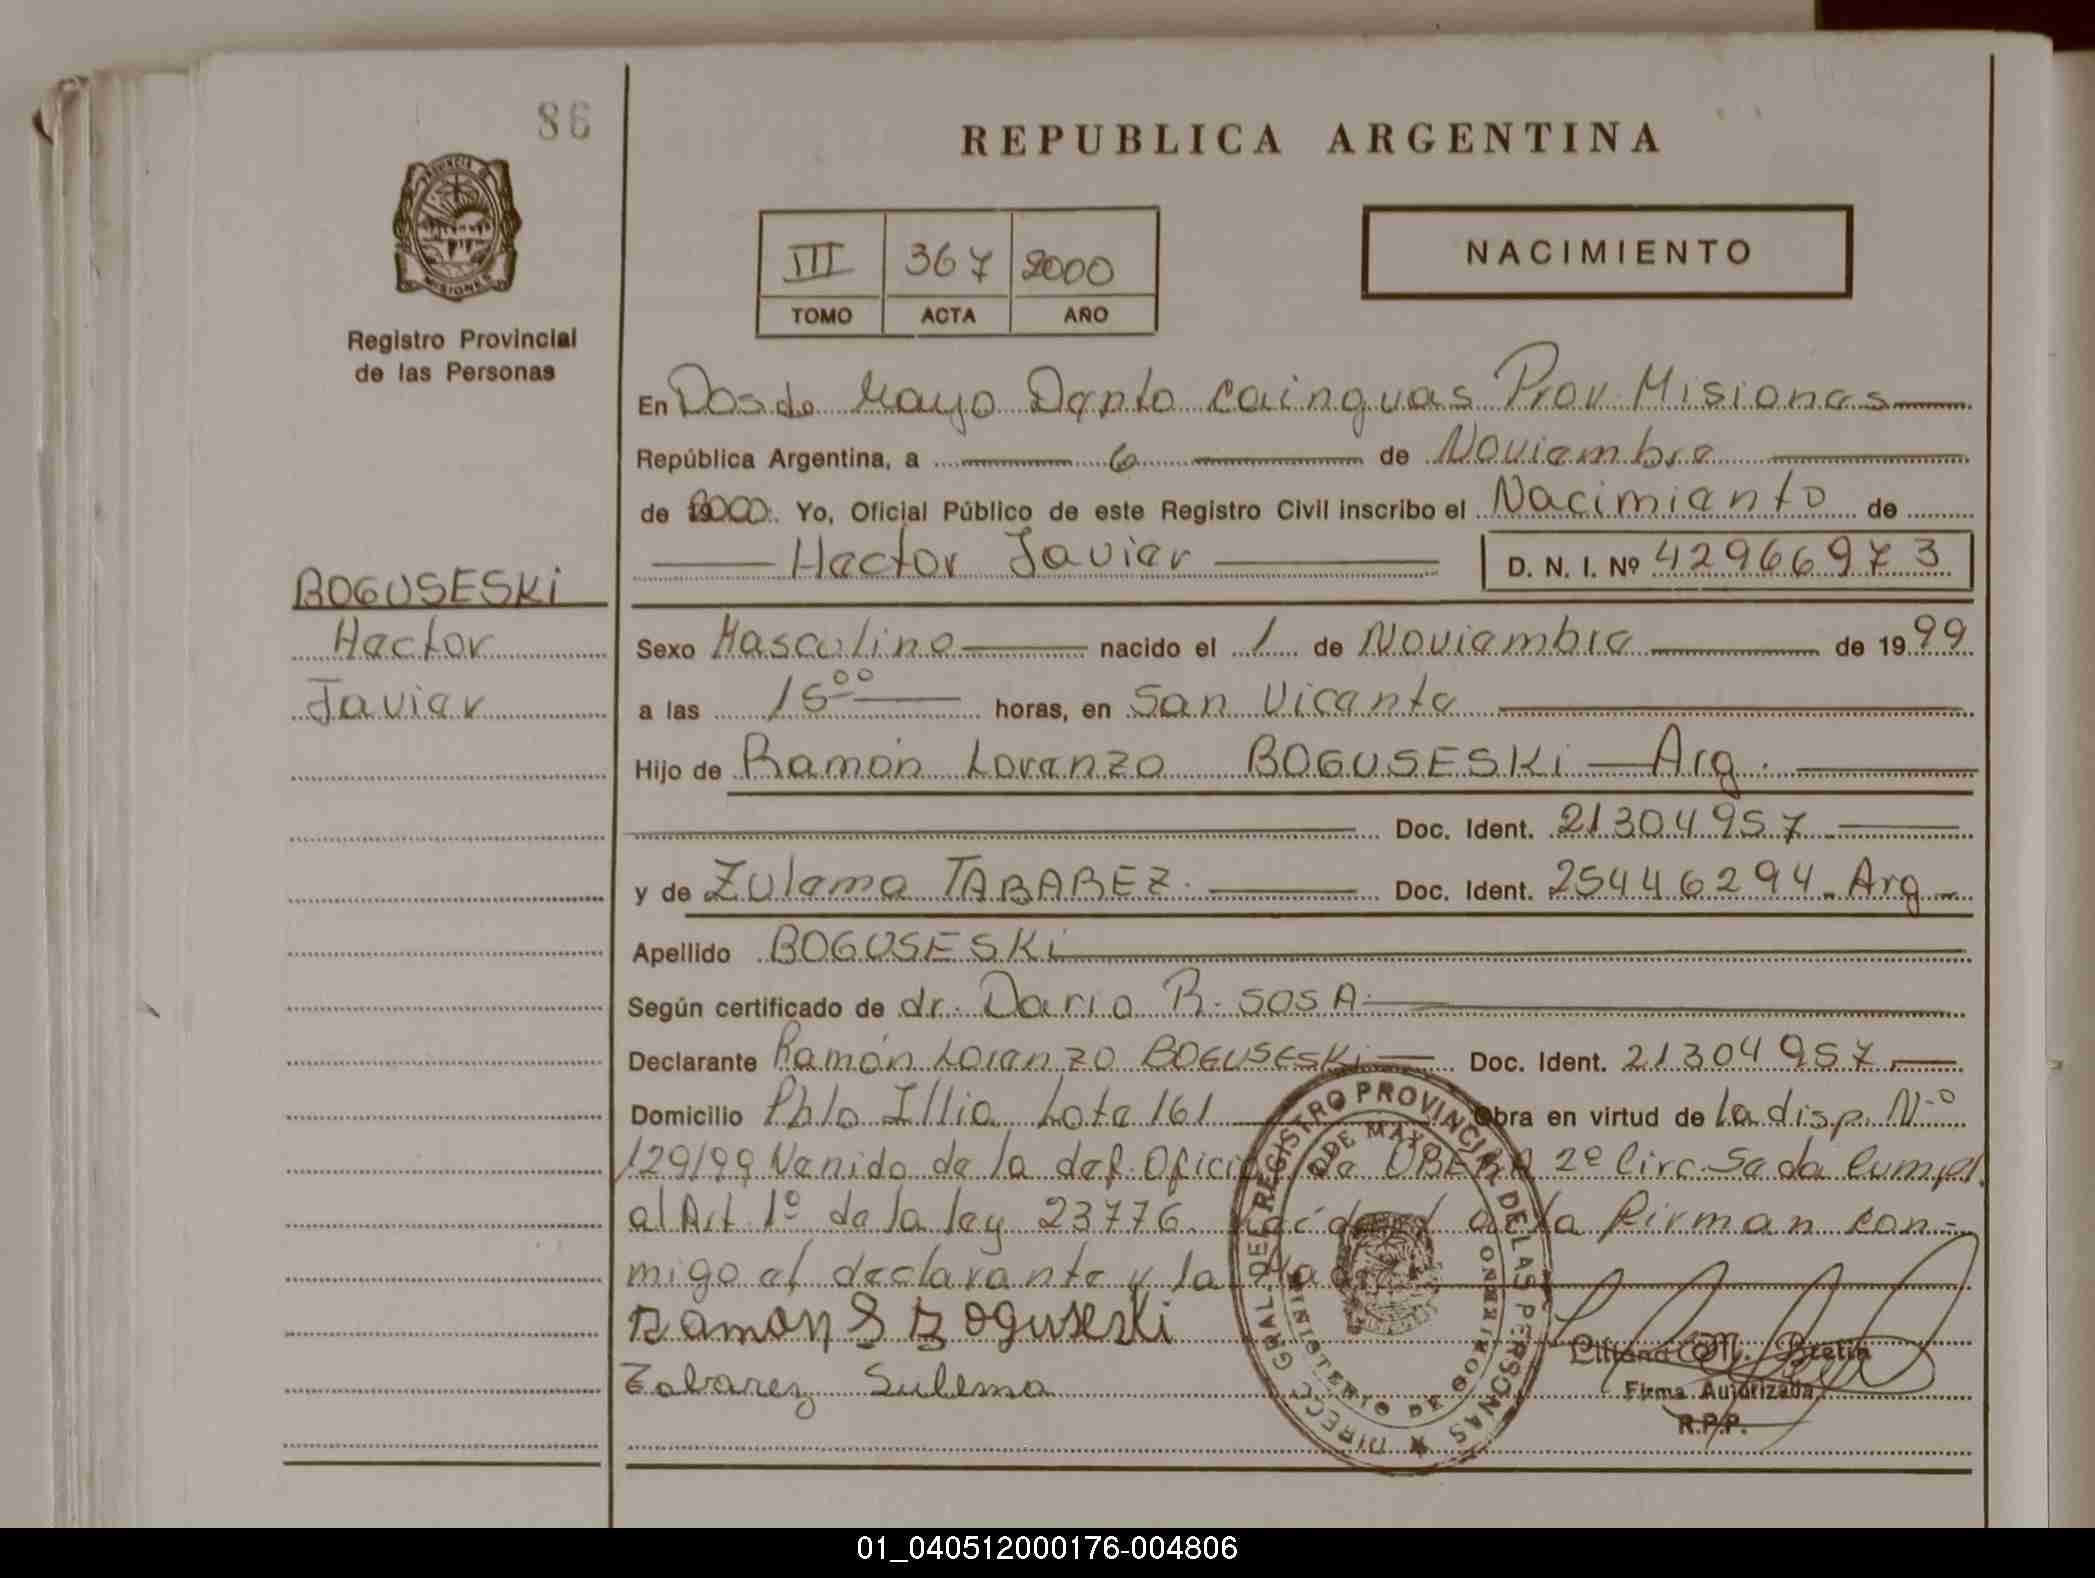 86
REPUBLICA ARGENTINA
PROVINCIA DE
MISIONES
Registro Provincial
de las Personas
III 367 2000
TOMO ACTA AÑO
NACIMIENTO
En Dos de Mayo Dapto Cainguas Prov. Misiones
República Argentina, a 6 de Noviembre
de 2000. Yo, Oficial Público de este Registro Civil inscribo el Nacimiento de
Hector Javier D. N. I. Nº 42966973
BOGUSESKi
Hector
Javier
Sexo Masculino nacido el 1 de Noviembre de 1999
a las 15⁰⁰ horas, en San Vicente
Hijo de Ramón Lorenzo BOGUSESKi Arg.
Doc. Ident. 21304957
y de Zulema TABAREZ. Doc. Ident. 25446294 - Arg -
Apellido BOGUSESKi
Según certificado de dr. Dario R. SOSA
Declarante Ramón Lorenzo BOGUSESKi Doc. Ident. 21304957
Domicilio Pblo Illia Lote 161 Obra en virtud de la disp. Nº
129/99 Venido de la def. Oficial de OBERA 2º Circ. Se da Cumpl.
al Art. 1º de la ley 23776. la firman con-
migo el declarante y la Madre
Ramon L Boguseski
Tabarez Sulema
DIRECC. GRAL. DEL REGISTRO PROVINCIAL DE LAS PERSONAS
MINISTERIO DE GOBIERNO
DE MAYO
Liliana M.
Firma Autorizada
R.P.P.
01_040512000176-004806